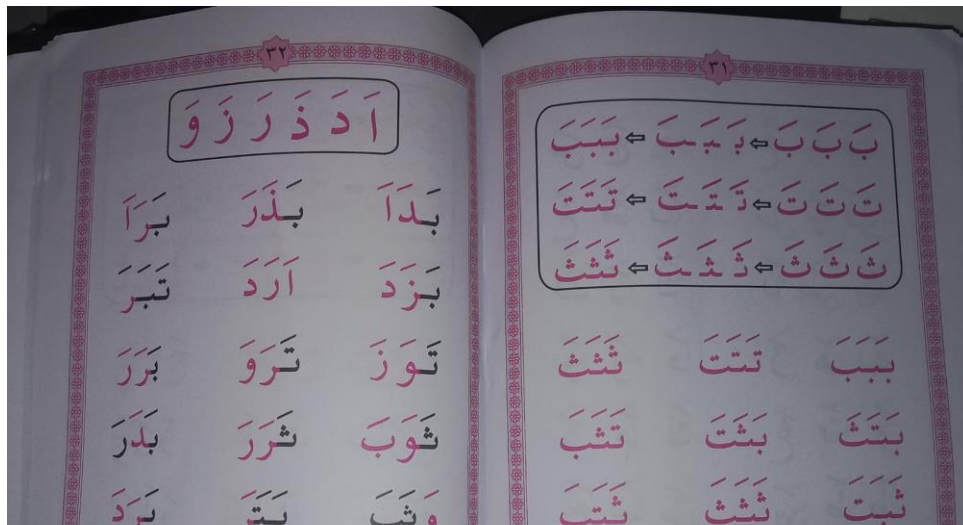 ٣١
بَ بَ بَ ⇦ بَـ ـبَـ ـبَ ⇦ بَبَبَ
تَ تَ تَ ⇦ تَـ ـتَـ ـتَ ⇦ تَتَتَ
ثَ ثَ ثَ ⇦ ثَـ ـثَـ ـثَ ⇦ ثَثَثَ
بَبَبَ تَتَتَ ثَثَثَ
بَتَثَ بَثَتَ تَثَبَ
ثَبَتَ ثَثَثَ ثَتَبَ
٣٢
اَ دَ ذَ رَ زَ وَ
بَدَاَ بَذَرَ بَرَاَ
بَزَدَ اَرَدَ تَبَرَ
تَوَزَ تَرَوَ بَرَرَ
ثَوَبَ ثَرَرَ بَدَرَ
وَثَبَ بَتَرَ بَرَدَ